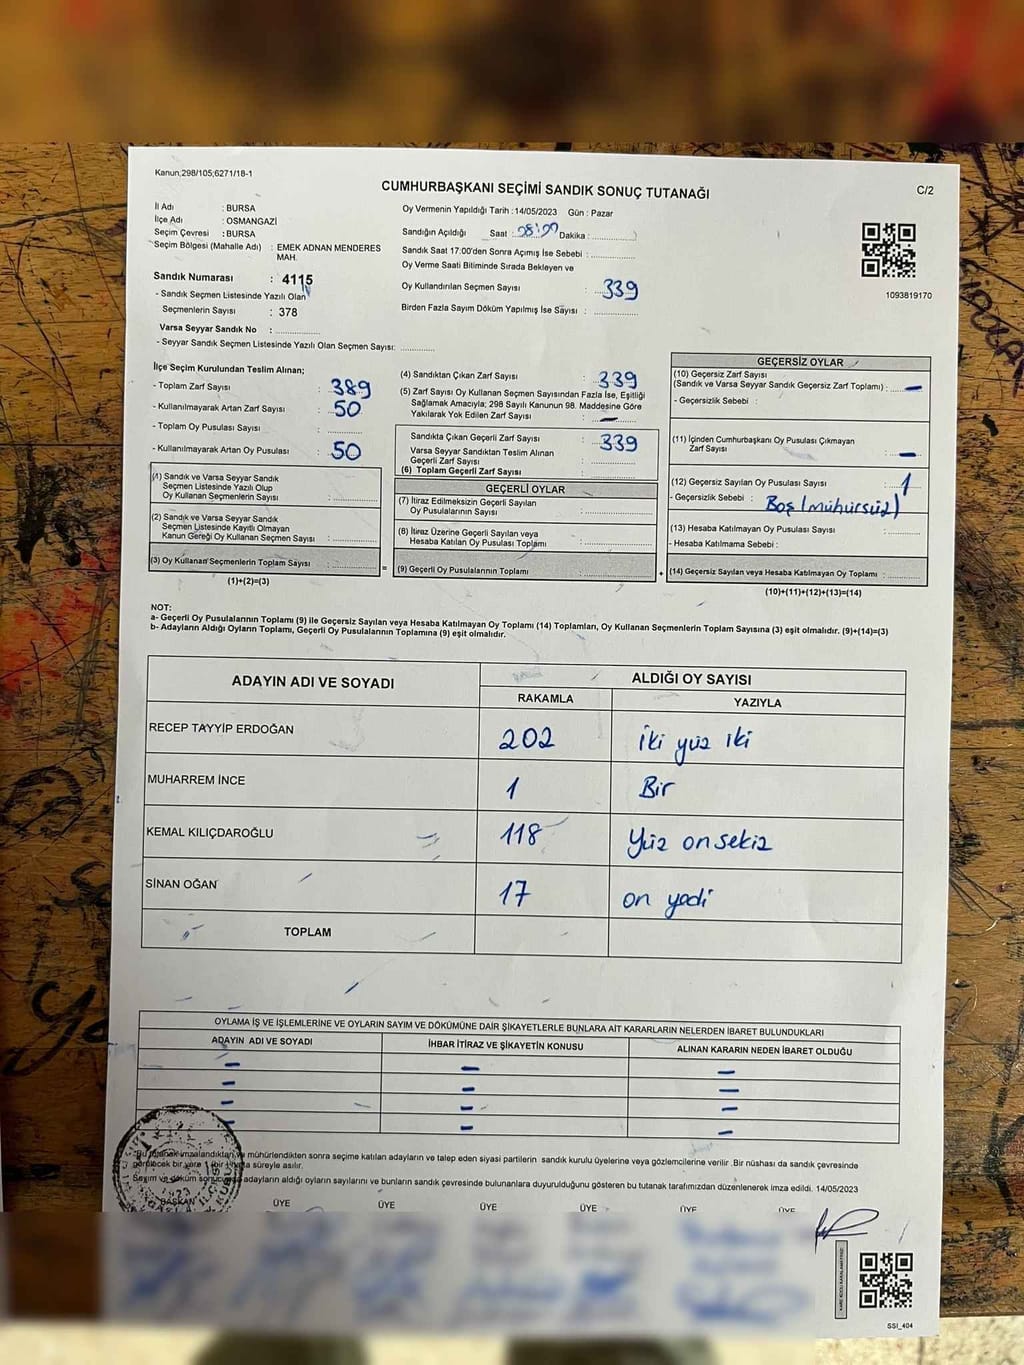 Kanun,298/105;6271/18-1
CUMHURBAŞKANI SEÇİMİ SANDIK SONUÇ TUTANAĞI
C/2
İl Adı : BURSA
İlçe Adı : OSMANGAZİ
Seçim Çevresi : BURSA
Seçim Bölgesi (Mahalle Adı) : EMEK ADNAN MENDERES MAH.
Sandık Numarası : 4115
- Sandık Seçmen Listesinde Yazılı Olan
Seçmenlerin Sayısı : 378
Varsa Seyyar Sandık No : ................
- Seyyar Sandık Seçmen Listesinde Yazılı Olan Seçmen Sayısı: ............
Oy Vermenin Yapıldığı Tarih : 14/05/2023 Gün : Pazar
Sandığın Açıldığı Saat : 08:00 Dakika : ................
Sandık Saat 17:00'den Sonra Açımış İse Sebebi : ................
Oy Verme Saati Bitiminde Sırada Bekleyen ve
Oy Kullandırılan Seçmen Sayısı : 339
Birden Fazla Sayım Döküm Yapılmış İse Sayısı : ................
1093819170
İlçe Seçim Kurulundan Teslim Alınan;
- Toplam Zarf Sayısı : 389
- Kullanılmayarak Artan Zarf Sayısı : 50
- Toplam Oy Pusulası Sayısı : ................
- Kullanılmayarak Artan Oy Pusulası : 50
(1) Sandık ve Varsa Seyyar Sandık
Seçmen Listesinde Yazılı Olup
Oy Kullanan Seçmenlerin Sayısı : ................
(2) Sandık ve Varsa Seyyar Sandık
Seçmen Listesinde Kayıtlı Olmayan
Kanun Gereği Oy Kullanan Seçmen Sayısı : ................
(3) Oy Kullanan Seçmenlerin Toplam Sayısı : ................
(1)+(2)=(3)
=
(4) Sandıktan Çıkan Zarf Sayısı : 339
(5) Zarf Sayısı Oy Kullanan Seçmen Sayısından Fazla İse, Eşitliği
Sağlamak Amacıyla; 298 Sayılı Kanunun 98. Maddesine Göre
Yakılarak Yok Edilen Zarf Sayısı : —
Sandıkta Çıkan Geçerli Zarf Sayısı : 339
Varsa Seyyar Sandıktan Teslim Alınan
Geçerli Zarf Sayısı : ................
(6) Toplam Geçerli Zarf Sayısı : ................
GEÇERLİ OYLAR
(7) İtiraz Edilmeksizin Geçerli Sayılan
Oy Pusulalarının Sayısı : ................
(8) İtiraz Üzerine Geçerli Sayılan veya
Hesaba Katılan Oy Pusulası Toplamı : ................
(9) Geçerli Oy Pusulalarının Toplamı : ................
+
GEÇERSİZ OYLAR
(10) Geçersiz Zarf Sayısı
(Sandık ve Varsa Seyyar Sandık Geçersiz Zarf Toplamı) : —
- Geçersizlik Sebebi :
(11) İçinden Cumhurbaşkanı Oy Pusulası Çıkmayan
Zarf Sayısı : —
(12) Geçersiz Sayılan Oy Pusulası Sayısı : 1
- Geçersizlik Sebebi : Boş (mühürsüz)
(13) Hesaba Katılmayan Oy Pusulası Sayısı : ................
- Hesaba Katılmama Sebebi :
(14) Geçersiz Sayılan veya Hesaba Katılmayan Oy Toplamı : ................
(10)+(11)+(12)+(13)=(14)
NOT:
a- Geçerli Oy Pusulalarının Toplamı (9) ile Geçersiz Sayılan veya Hesaba Katılmayan Oy Toplamı (14) Toplamları, Oy Kullanan Seçmenlerin Toplam Sayısına (3) eşit olmalıdır. (9)+(14)=(3)
b- Adayların Aldığı Oyların Toplamı, Geçerli Oy Pusulalarının Toplamına (9) eşit olmalıdır.
ADAYIN ADI VE SOYADI
ALDIĞI OY SAYISI
RAKAMLA YAZIYLA
RECEP TAYYİP ERDOĞAN 202 İki yüz iki
MUHARREM İNCE 1 Bir
KEMAL KILIÇDAROĞLU 118 Yüz onsekiz
SİNAN OĞAN 17 on yedi
TOPLAM
OYLAMA İŞ VE İŞLEMLERİNE VE OYLARIN SAYIM VE DÖKÜMÜNE DAİR ŞİKAYETLERLE BUNLARA AİT KARARLARIN NELERDEN İBARET BULUNDUKLARI
ADAYIN ADI VE SOYADI İHBAR İTİRAZ VE ŞİKAYETİN KONUSU ALINAN KARARIN NEDEN İBARET OLDUĞU
— — —
— — —
— — —
— — —
Bu tutanak imzalandıktan ve mühürlendikten sonra seçime katılan adayların ve talep eden siyasi partilerin sandık kurulu üyelerine veya gözlemcilerine verilir .Bir nüshası da sandık çevresinde
görülecek bir yere 1 (bir) hafta süreyle asılır.
Sayım ve döküm sonucunda adayların aldığı oyların sayılarını ve bunların sandık çevresinde bulunanlara duyurulduğunu gösteren bu tutanak tarafımızdan düzenlenerek imza edildi. 14/05/2023
BAŞKAN ÜYE ÜYE ÜYE ÜYE ÜYE ÜYE
SSI_404